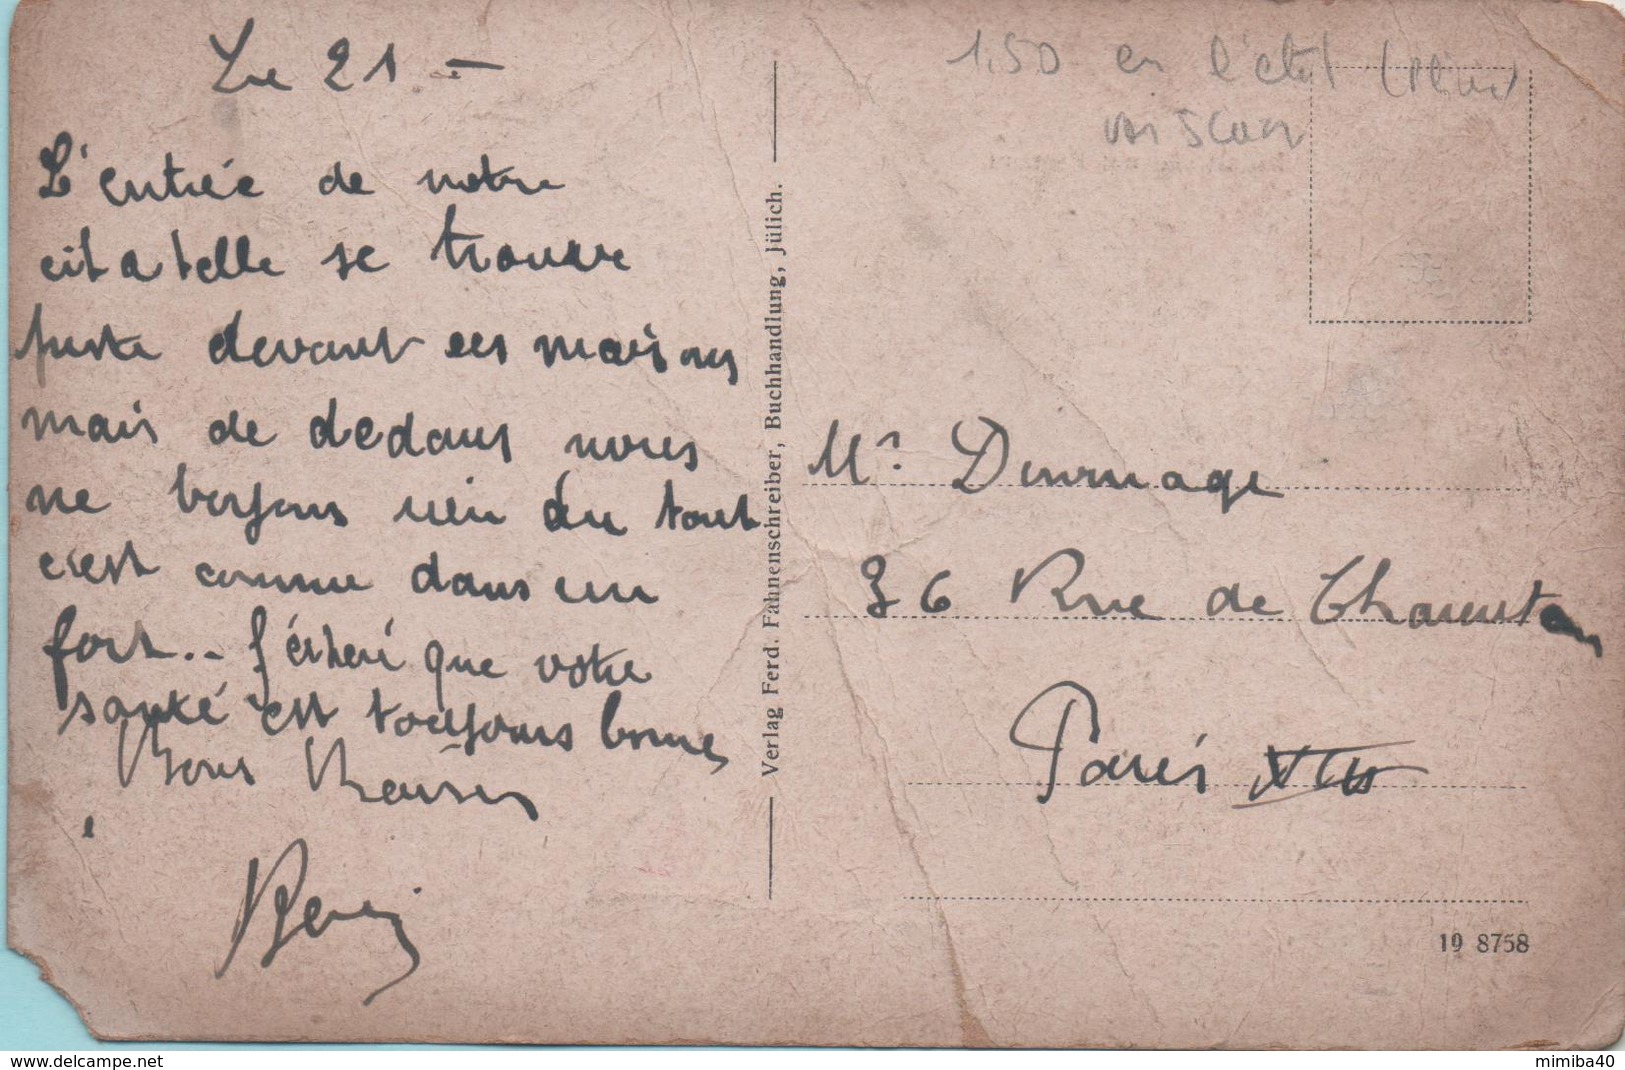 Le 21 -
L'entrée de notre
citatelle se trouve
juste devant ces maisons
mais de dedans nous
ne voyons rien du tout
c'est comme dans un
fort.. J'éspère que votre
santé est toujours bonne
Bons Baisers
Verlag Ferd. Fahnenschreiber, Buchhandlung, Jülich.
1.50 en l'état
Mr. Dourmage
36 Rue de Charenton
Paris XII
19 8758
www.delcampe.net
mimiba40